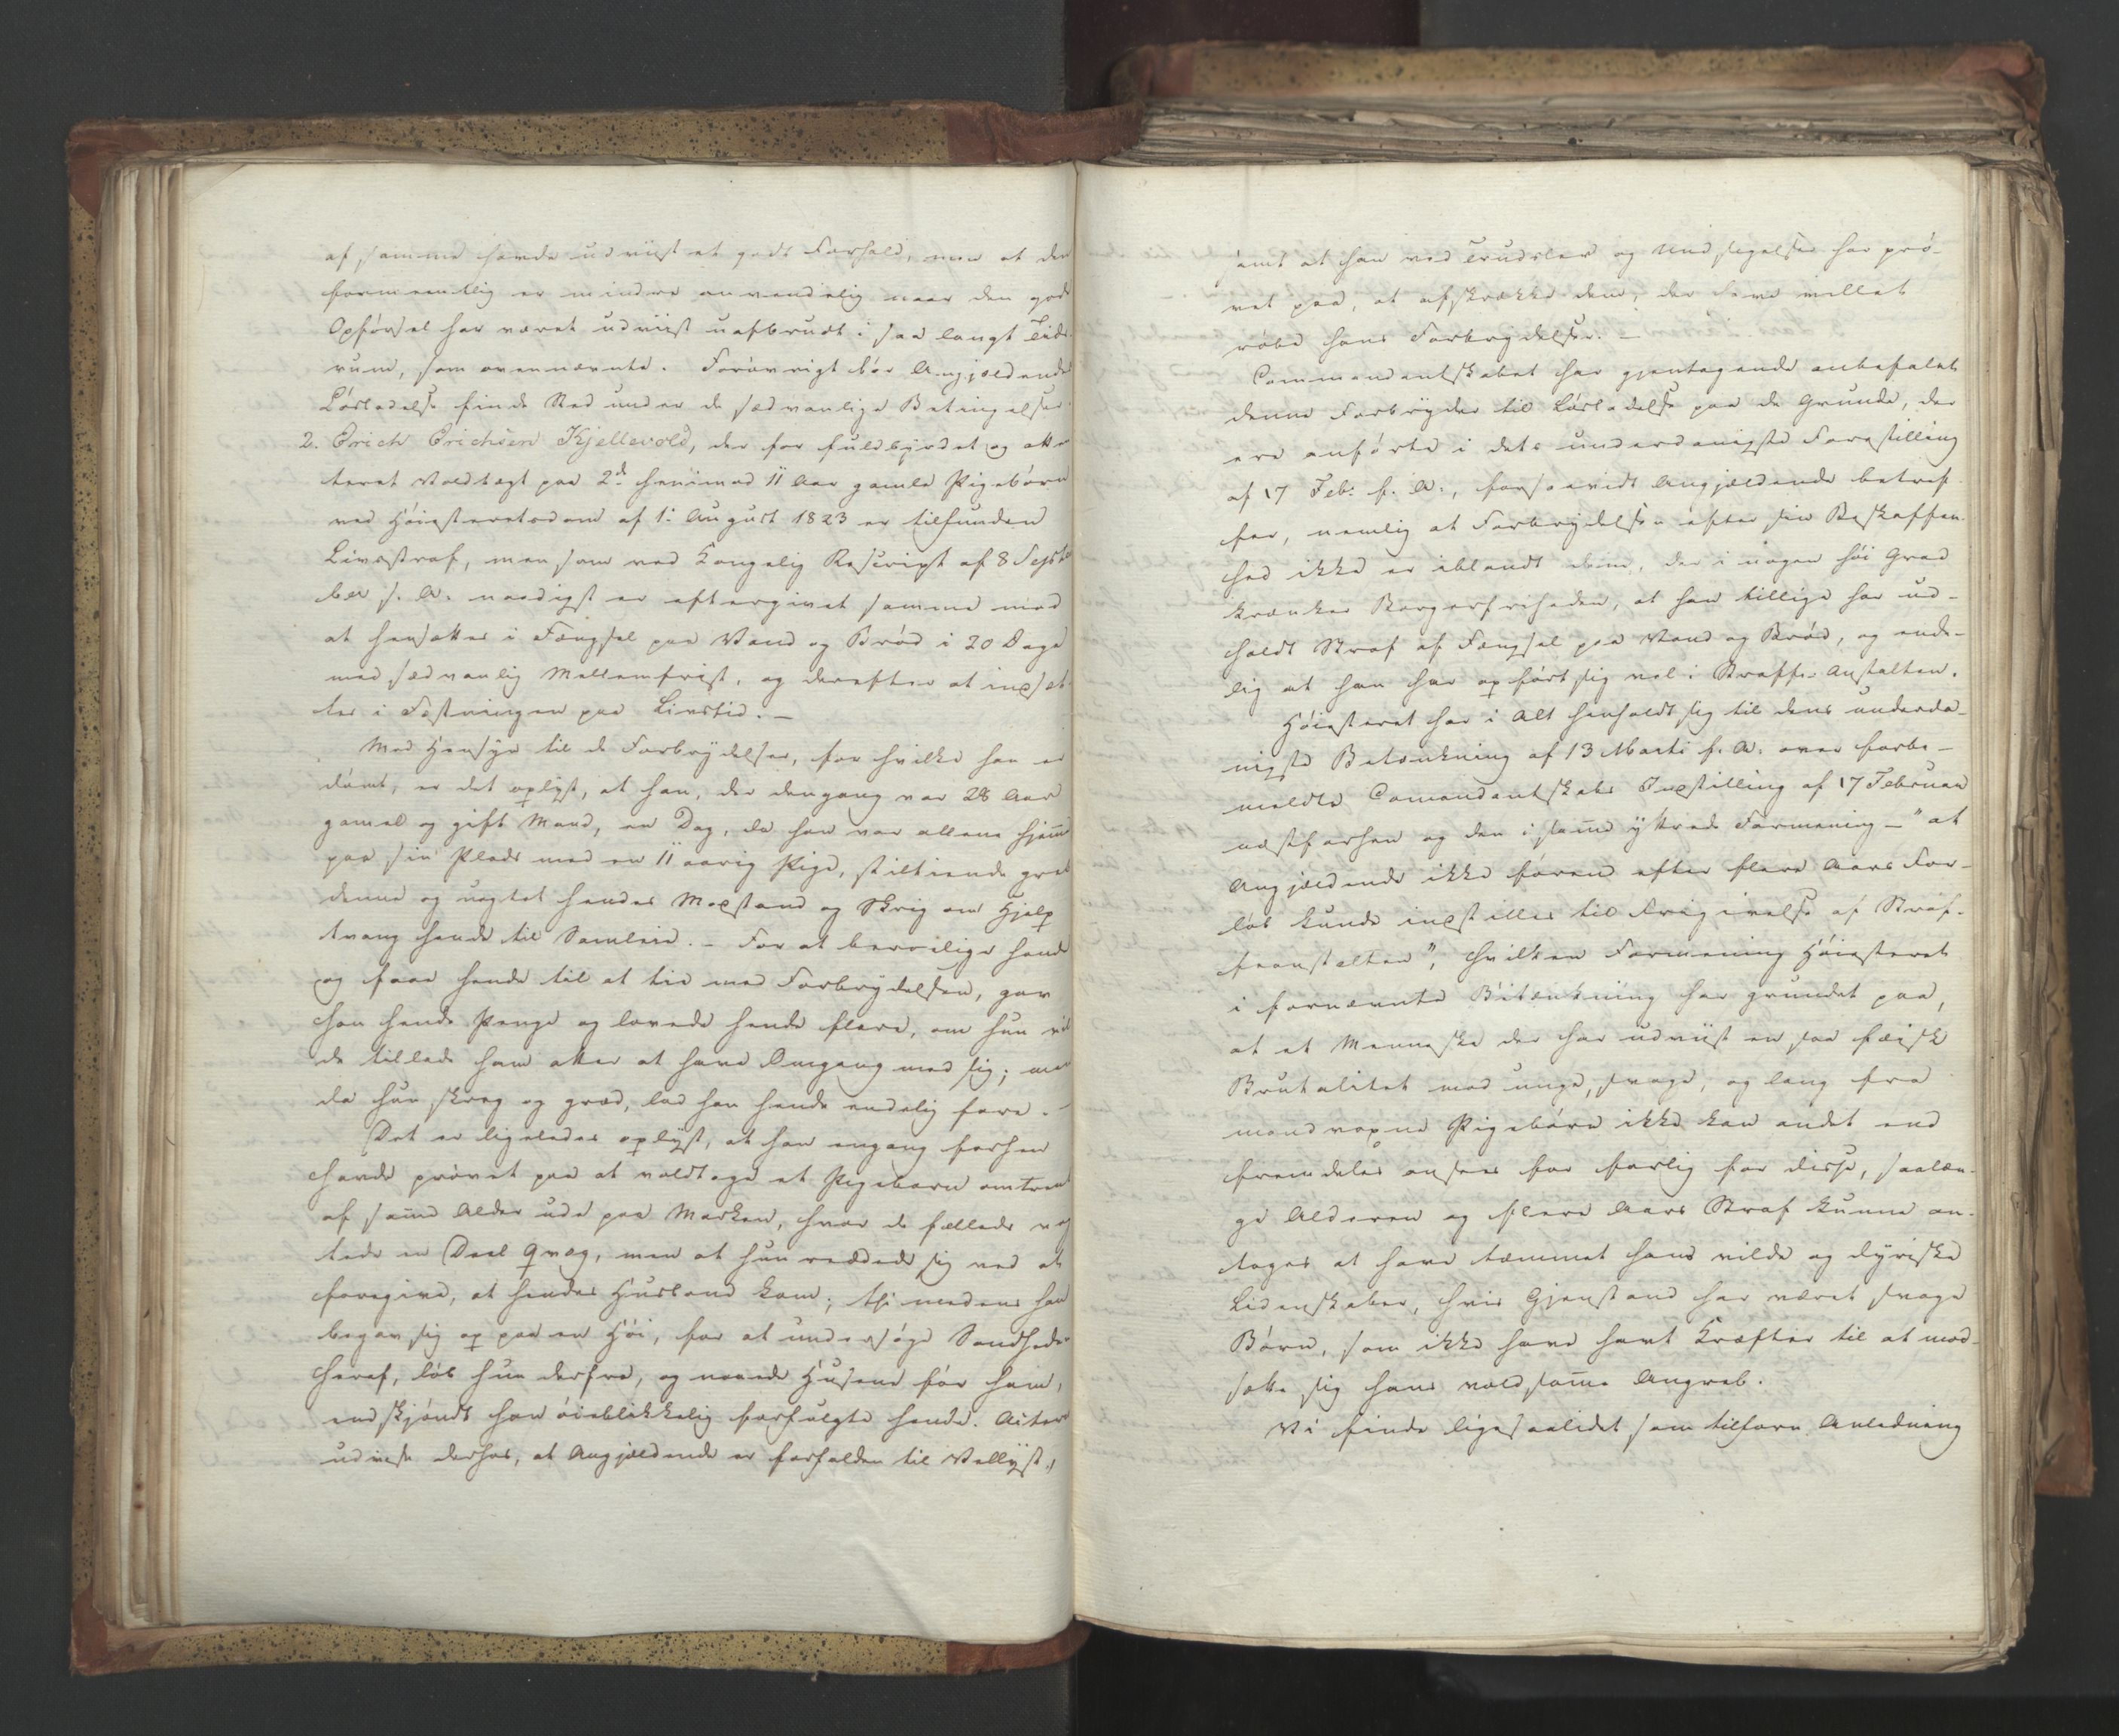 af samme havde udviist et godt Forhold, men at den
formeentlig er mindre anvendelig naar den gode
Opførsel har været udviist uafbrudt i saa langt Tids-
rum, som ovennævnte. Forøvrigt bør Angjældendes
Løsladelse finde Sted under de sædvanlige Betingelser.
2. Erich Erichsen Kjellevold, der for fuldbyrdet og atten-
teret Voldtægt paa 2de henimod 11 Aar gamle Pigebørn
ved Høiesteretsdom af 1: August 1823 er tilfunden
Livsstraf, men som ved Kongelig Rescript af 8 Septem
ber s. A. naadigst er eftergivet samme mod
at hensættes i Fængsel paa Vand og Brød i 20 Dage
med sædvanlig Mellemfrist, og derefter at indsæt-
tes i Fæstningen paa Livstid. —
Med Hensyn til de Forbrydelser, for hvilke han er
dømt, er det oplyst, at han, der dengang var 28 Aar
gammel og gift Mand, en Dag, da han var allene hjemme
paa sin Plads med en 11 aarig Pige, stiltiende greb
denne og uagtet hendes Modstand og Skrig om Hjelp
tvang hende til Samleie. – For at berolige hende
og faae hende til at tie med Forbrydelsen, gav
han hende Penge og lovede hende flere, om hun vil
de tillade ham atter at have Omgang med sig; men
da hun skreg og græd, lod han hende endelig fare. –
Det er ligeledes oplyst, at han engang forhen
havde prøvet paa at voldtage et Pigebarn omtrent
af samme Alder ude paa Marken, hvor de fælleds vog
tede en Deel Qvæg, men at hun reddede sig ved at
foregive, at hendes Husbond kom; thi medens han
begav sig op paa en Høi, for at undersøge Sandheden
heraf, løb hun derfra, og naaede Husene før ham,
endskjøndt han øieblikkelig forfulgte hende. Acterne
udvise derhos, at Angjældende er forfalden til Vellyst,
samt at han ved Trudsler og Undsigelser har prø-
vet paa, at afskrække dem, der have villet
røbe hans Forbrydelser. –
Commandantskabet har gjentagende anbefalet
denne Forbryder til Løsladelse paa de Grunde, der
ere anførte i dets underdanigste Forestilling
af 17 Feb: f. A., forsaavidt Angjældende betref-
fer, nemlig at Forbrydelsen efter sin Beskaffen-
hed ikke er iblandt dem, der i nogen høi Grad
krænker Borgerfriheden, at han tillige har ud-
holdt Straf af Fængsel paa Vand og Brød, og ende-
lig at han har opført sig vel i Straffe-Anstalten.
Høiesteret har i Alt henholdt sig til dens underda-
nigste Betænkning af 13 Marts f. A. over forbe-
meldte Comandantskabs Indstilling af 17 Februar
næstforhen og den i samme yttrede Formening – "at
Angjældende ikke førend efter flere Aars For-
løb kunde indstilles til Frigivelse af Straf-
feanstalten", hvilken Formening Høiesteret
i fornævnte Betænkning har grundet paa,
at et Menneske der har udviist en saa fæisk
Brutalitet mod unge, svage, og lang fra
mandvoxne Pigebørn ikke kan andet end
fremdeles ansees for farlig for disse, saalæn-
ge Alderen og flere Aars Straf kunne an-
tages at have tæmmet hans vilde og dyriske
Lidenskaber, hvis Gjenstand har været svage
Børn, som ikke have havt Kræfter til at mod-
sætte sig hans voldsomme Angreb.
Vi finde ligesaalidet som tilforn Anledning